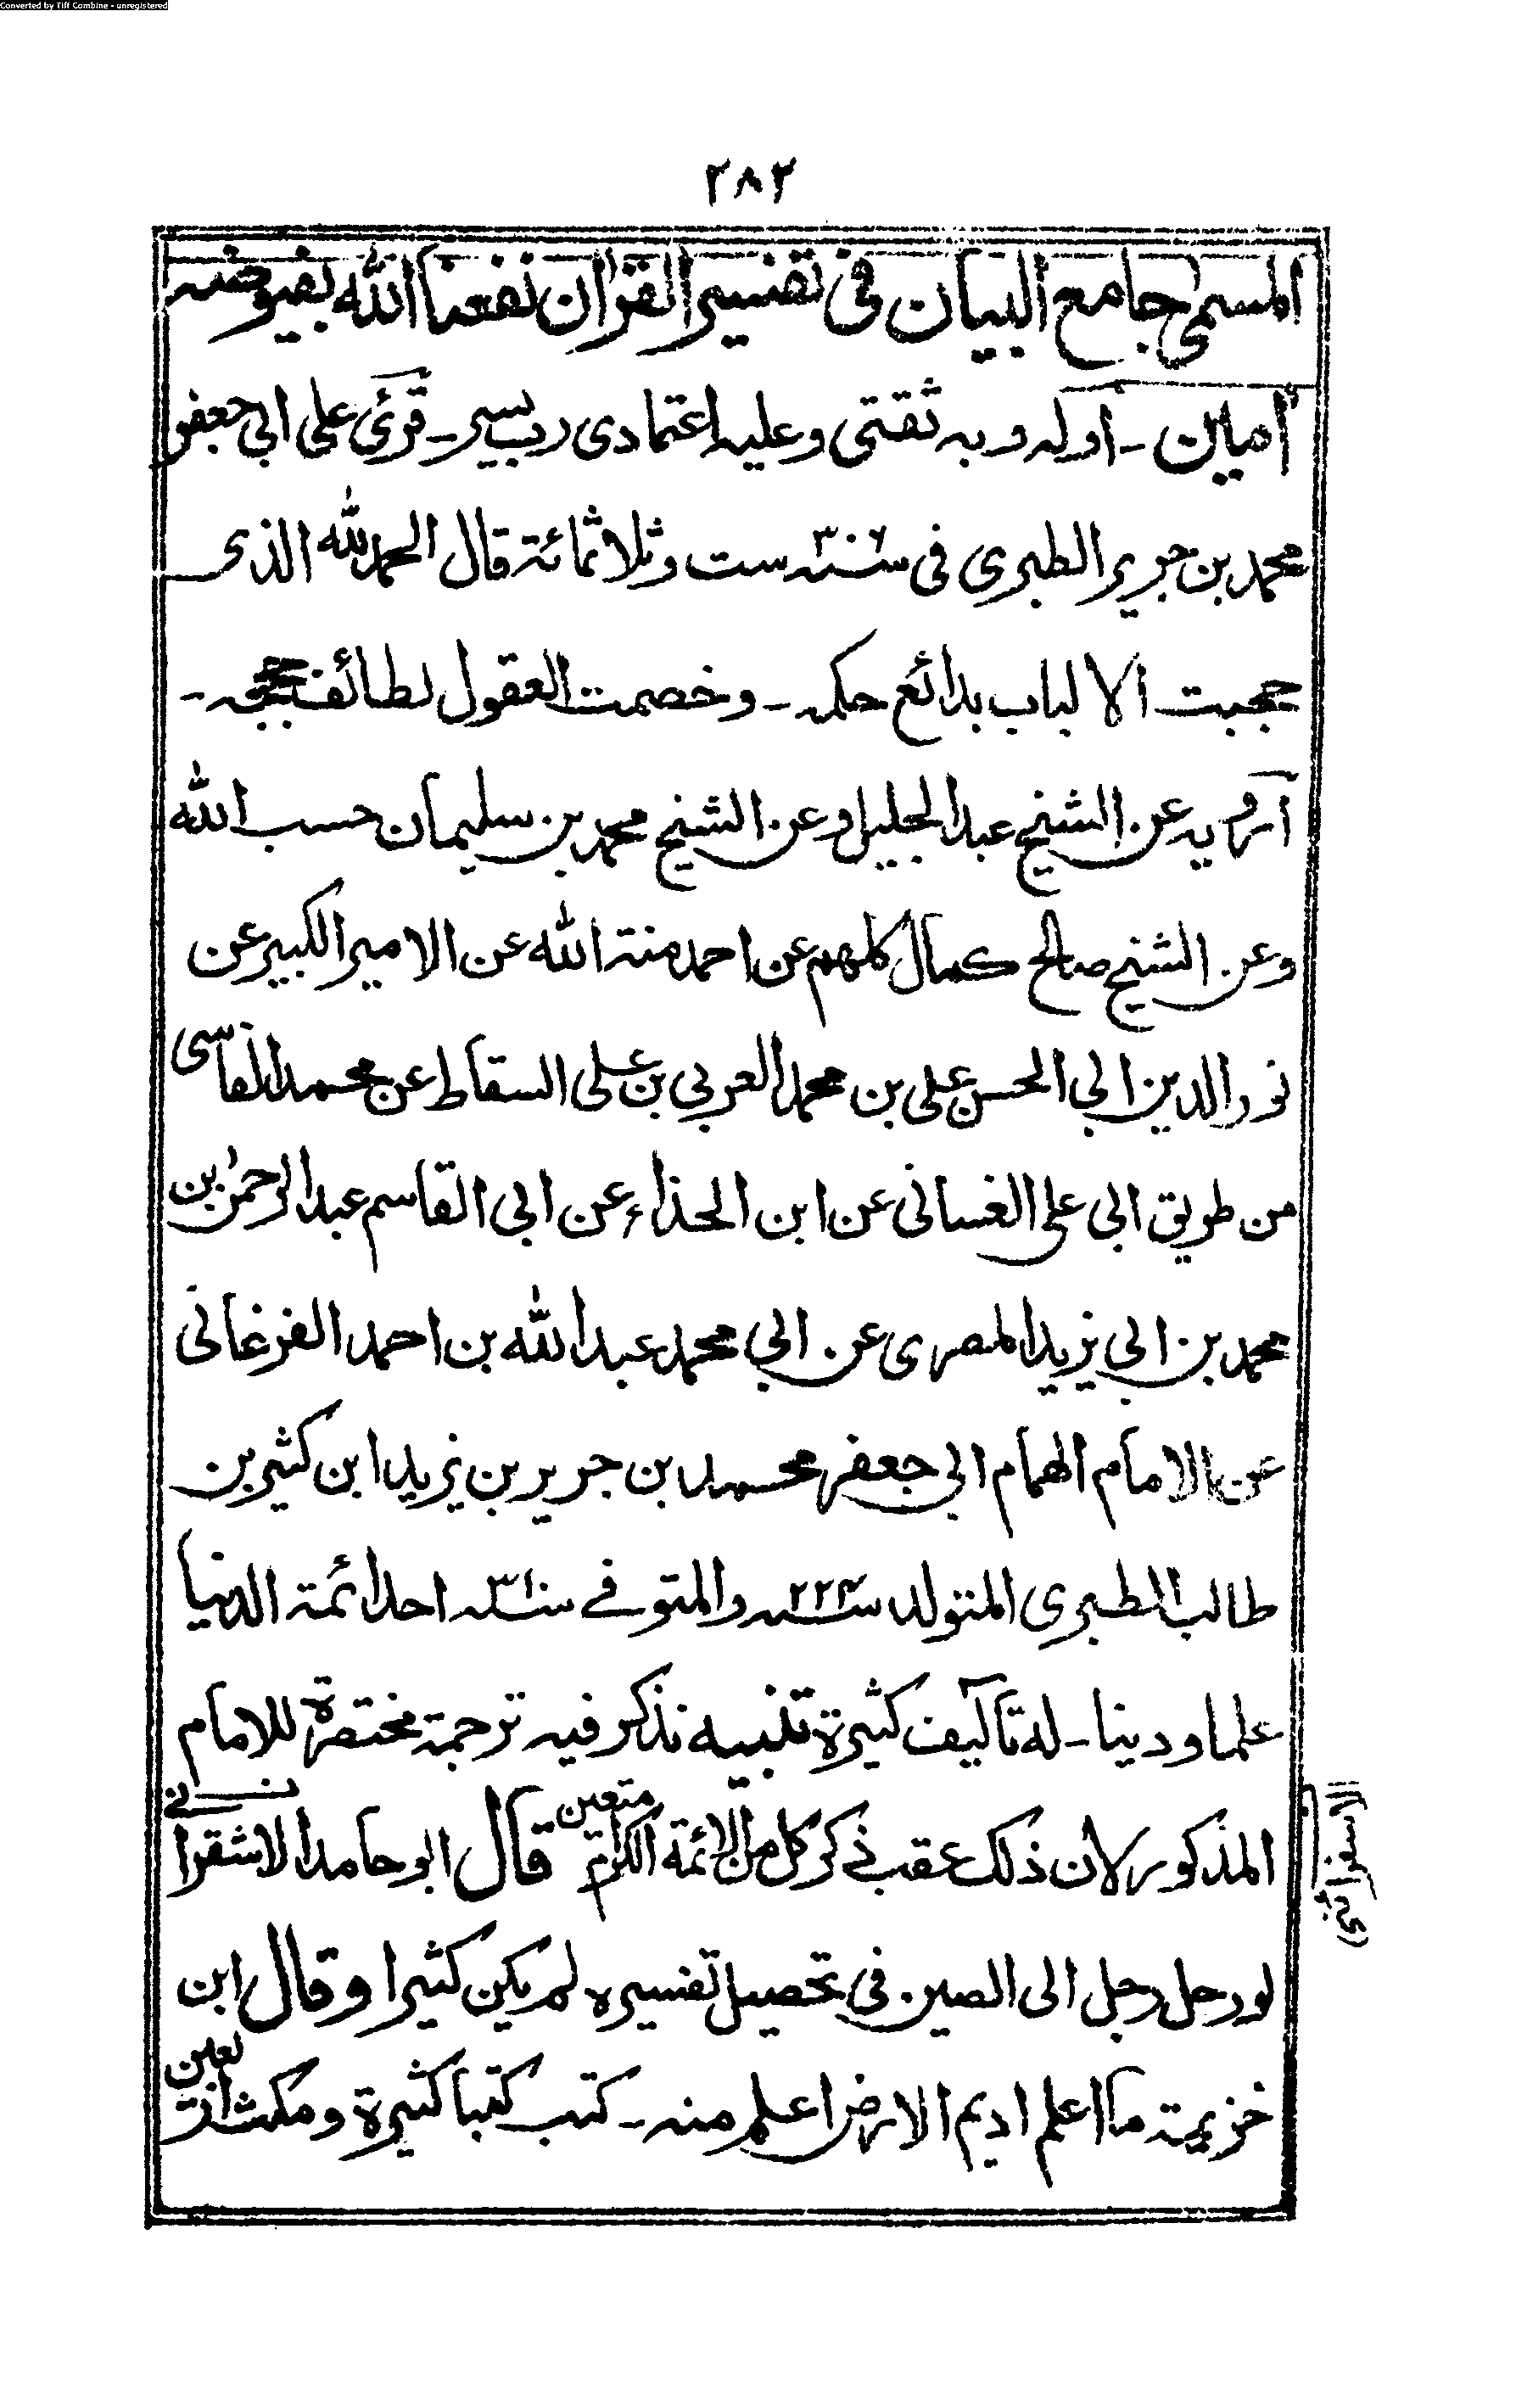 Converted by Tiff Combine - unregistered
٢٨٢
المسمى جامع البيان فى تفسير القران نفعنا الله بفيوضه
أمين - أوله وبه ثقتى وعليه اعتمادى رب يسر - قرئ على ابى جعفر
محمد بن جرير الطبرى فى سنة ٣٠٦ ست وثلاثمائة قال الحمد لله الذى
حججبت الالباب بدائع حكمه - وخصمت العقول لطائف حججه -
آرويه عن الشيخ عبد الجليل وعن الشيخ محمد بن سليمان حسب الله
وعن الشيخ صالح كمال كلهم عن احمد منة الله عن الامير الكبير عن
نور الدين ابى الحسن على بن محمد العربي بن على السقاط عن محمد الفاسى
من طريق ابى على الغسانى عن ابن الحذاء عن ابى القاسم عبد الرحمن بن
محمد بن ابى يزيد المصرى عن ابى محمد عبد الله بن احمد الفرغانى
عن الامام الهمام ابى جعفر محمد بن جرير بن يزيد ابن كثير بن
طالب الطبرى المتولد سنة ٢٢٤ والمتوفے سنة ٣١٠ احد ائمة الدنيا
علما ودينا - له تآليف كثيرة تنبيه نذكر فيه ترجمة مختصرة للامام
المذكور لان ذلك عقب ذكر كل من الائمة الكرام متعين قال ابو حامد الاشقرانے
لو رحل رجل الى الصين فى تحصيل تفسيره لم يكن كثيرا وقال ابن
خزيمة ما اعلم اديم الارض اعلم منه - كتب كتبا كثيرة ومكث اربعين